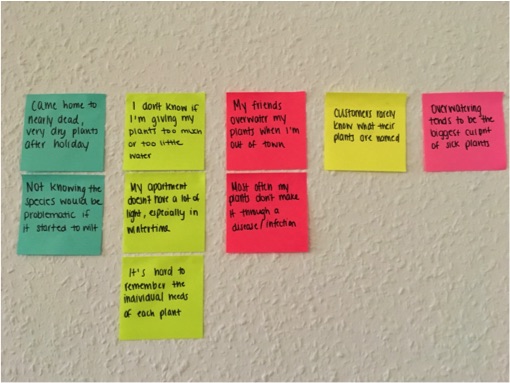 Came home to
nearly dead,
very dry plants
after holiday
Not knowing the
species would be
problematic if
it started to wilt
I don't know if
I'm giving my
plants too much
or too little
water
My apartment
doesn't have a lot of
light, especially in
wintertime
It's hard to
remember the
individual needs
of each plant
My friends
overwater my
plants when I'm
out of town
Most often my
plants don't make
it through a
disease/infection
Customers rarely
know what their
plants are named
Overwatering
tends to be the
biggest culprit
of sick plants